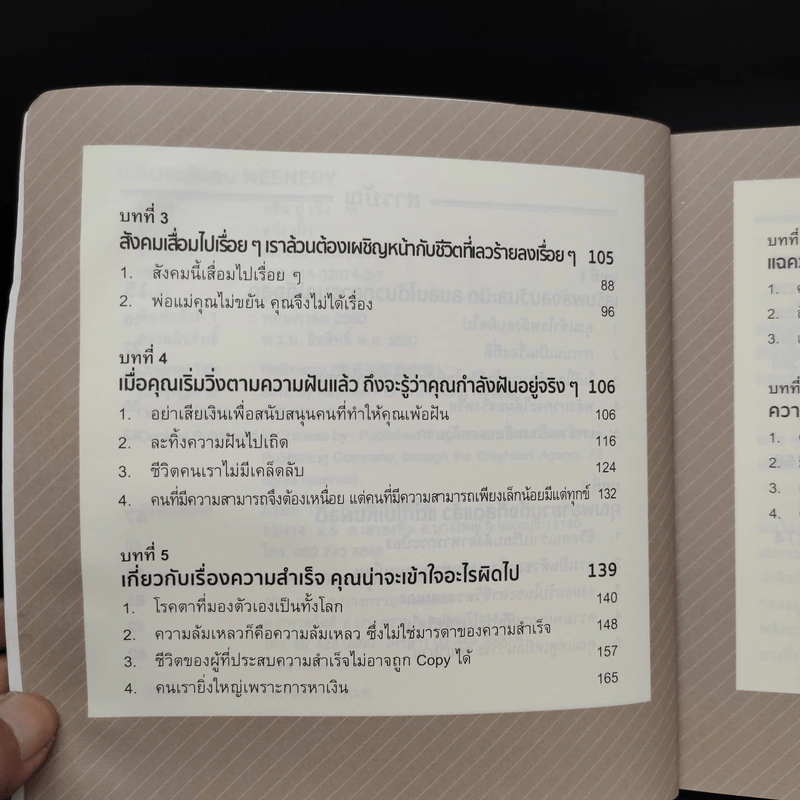 บทที่ 3
สังคมเสื่อมไปเรื่อย ๆ เราล้วนต้องเผชิญหน้ากับชีวิตที่เลวร้ายลงเรื่อย ๆ 105
1. สังคมนี้เสื่อมไปเรื่อย ๆ 88
2. พ่อแม่คุณไม่ขยัน คุณจึงไม่ได้เรื่อง 96
บทที่ 4
เมื่อคุณเริ่มวิ่งตามความฝันแล้ว ถึงจะรู้ว่าคุณกำลังฝันอยู่จริง ๆ 106
1. อย่าเสียเงินเพื่อสนับสนุนคนที่ทำให้คุณเพ้อฝัน 106
2. ละทิ้งความฝันไปเถิด 116
3. ชีวิตคนเราไม่มีเคล็ดลับ 124
4. คนที่มีความสามารถจึงต้องเหนื่อย แต่คนที่มีความสามารถเพียงเล็กน้อยมีแต่ทุกข์ 132
บทที่ 5
เกี่ยวกับเรื่องความสำเร็จ คุณน่าจะเข้าใจอะไรผิดไป 139
1. โรคตาที่มองตัวเองเป็นทั้งโลก 140
2. ความล้มเหลวก็คือความล้มเหลว ซึ่งไม่ใช่มารดาของความสำเร็จ 148
3. ชีวิตของผู้ที่ประสบความสำเร็จไม่อาจถูก Copy ได้ 157
4. คนเรายิ่งใหญ่เพราะการหาเงิน 165
บทที่
แฉคว
1.
2.
3.
บทที่
ควา
1.
2.
3.
4.